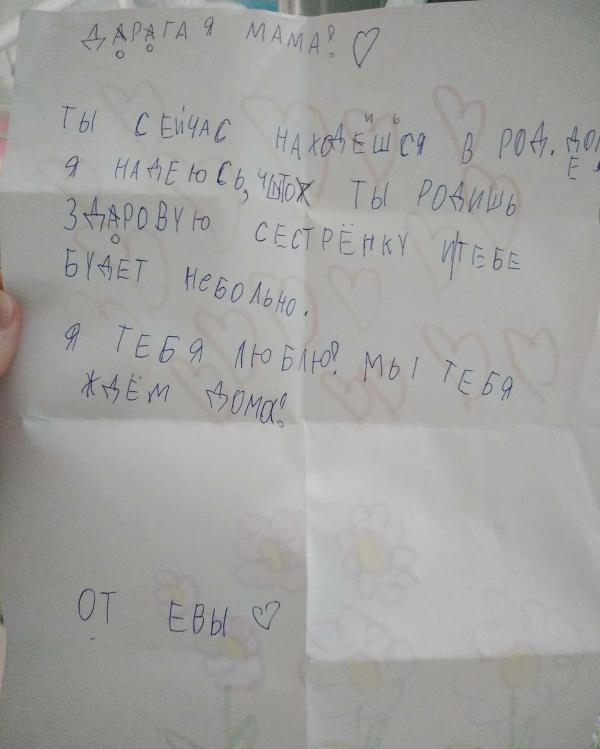 ДАРАГАЯ МАМА! ♡
ТЫ СЕЙЧАС НАХОДЁШСЯ В РОД. ДОМЕ
Я НАДЕЮСЬ, ЧТО ТЫ РОДИШЬ
ЗДАРОВУЮ СЕСТРЁНКУ И ТЕБЕ
БУДЕТ НЕБОЛЬНО.
Я ТЕБЯ ЛЮБЛЮ! МЫ ТЕБЯ
ЖДЁМ ДОМА!
ОТ ЕВЫ ♡